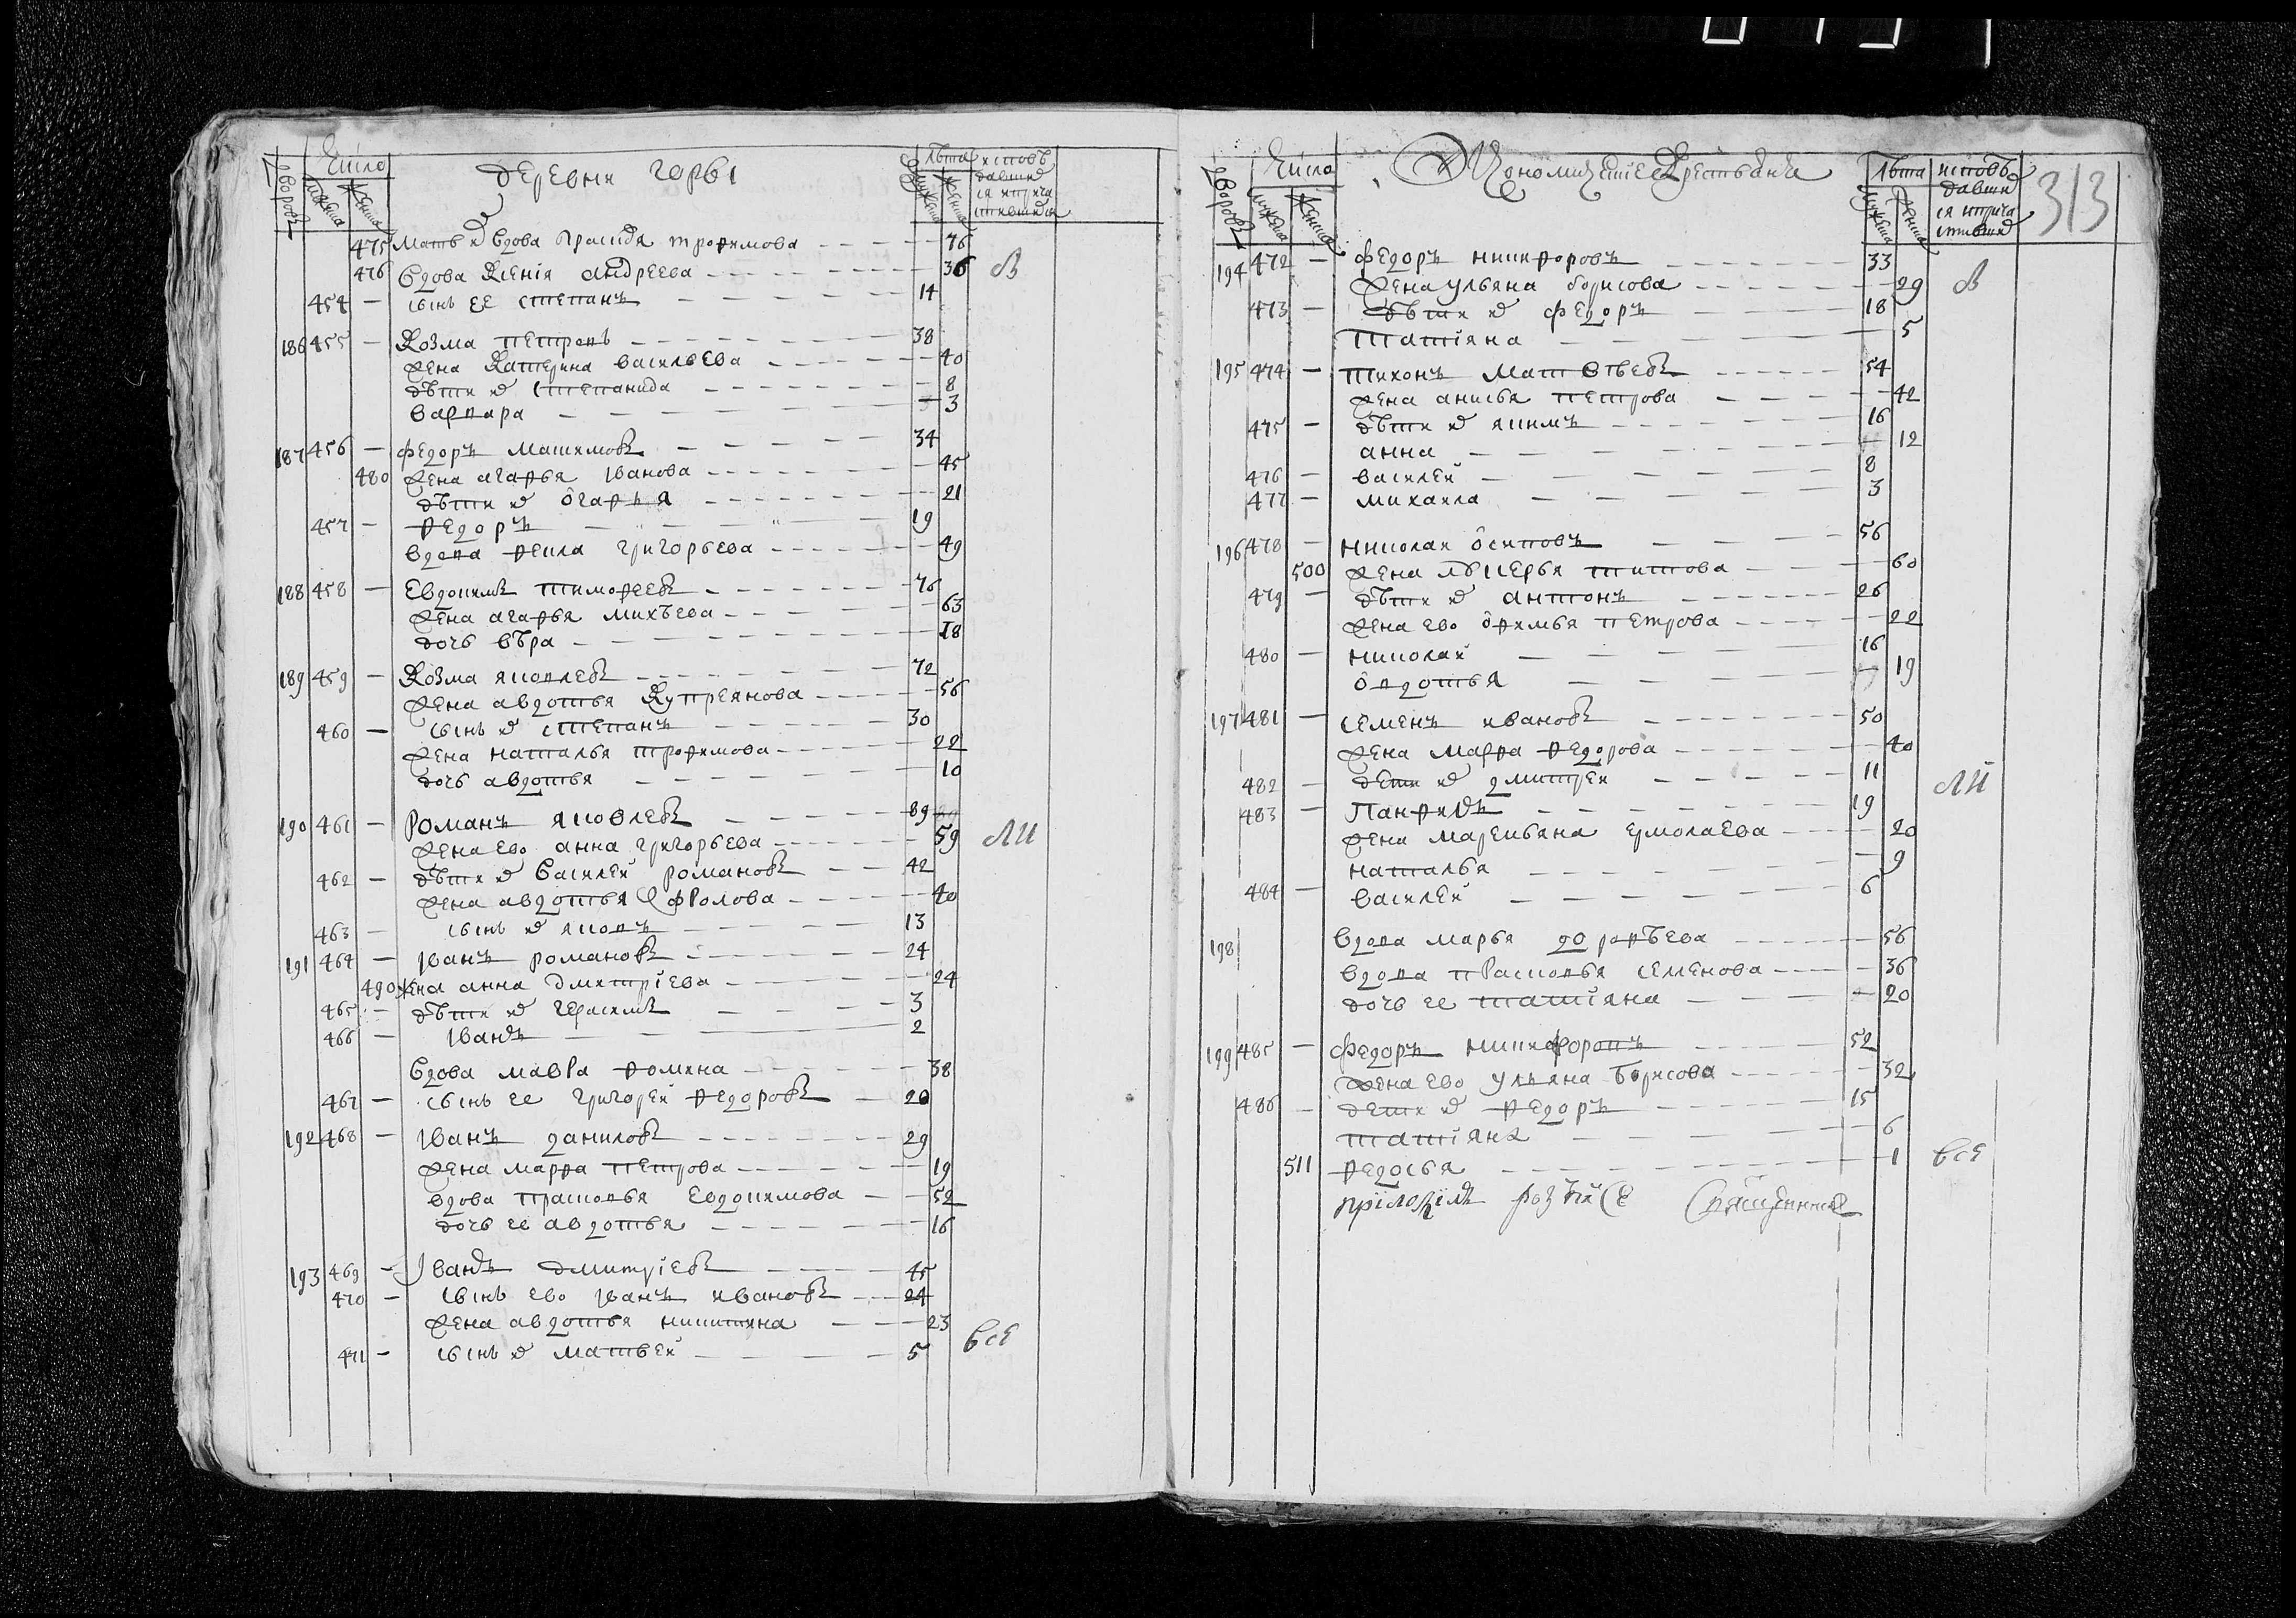 дворовъ Число мужеска женска деревни горбы лѣта мужеска женска исповѣ
давши
ся ипрıча
стившııся
475 Мать ево вдова Прасковя трофимова 76
476 вдова Ксенія андреева 36
454 — сынъ ее степанъ 14
186 455 — Козма петровъ 38
жена Катерина васильева 40
дѣти их степанида 8
варвара 3
187 456 — федоръ максимовъ 34
480 жена агафья Iванова 45
дѣти их огафья 21
457 — федоръ 19
вдова фекла григорьева 49
188 458 — Евдокимъ тимофеевъ 76
жена агафья михѣева 63
дочь вѣра 18
189 459 — Козма яковлевъ 72
жена авдотья Купреянова 56
460 — сынъ их степанъ 30
жена наталья трофимова 22
дочь авдотья 10
190 461 — Романъ яковлевъ 89
жена ево анна григорьева 59
462 — дѣти их василей романовъ 42
жена авдотья фролова 40
463 — сынъ их яковъ 13
191 464 — Iванъ романовъ 24
490 жена анна дмитріева 24
465 — дѣти их герасимъ 3
466 — Iванъ 2
вдова мавра фомина 38
467 — сынъ ее григорей федоровъ 20
192 468 — Iванъ даниловъ 29
жена марфа петрова 19
вдова прасковья Евдокимова 52
дочь ее авдотья 16
193 469 — Iванъ дмитріевъ 45
470 — сынъ ево Iванъ ивановъ 24
жена авдотья никитина 23
471 — сынъ их матвей 5
В
ЛИ
всЕ
дворовъ Число мужеска женска Экономические Крестьяне лѣта мужеска женска исповѣ
давши
ся ипрıча
стившıı
313
194 472 — федоръ никифоровъ 33
жена ульяна борисова 29
473 — дѣти их федоръ 18
татіяна 5
195 474 — тихонъ матвѣевъ 54
жена анисья петрова 42
475 — дѣти их якимъ 16
анна 12
476 — василей 8
477 — михаила 3
196 478 — николай осиповъ 56
500 жена лукерья титова 60
479 — дѣти их антонъ 26
жена ево офимья петрова 22
480 — николай 16
овдотья 19
197 481 — семенъ ивановъ 50
жена марфа федорова 40
482 — дети их дмитрей 11
483 — Панфилъ 19
жена маремьяна ермолаева 20
наталья 9
484 — василей 6
198 вдова марья дорофѣева 56
вдова прасковья семенова 36
дочь ее татіяна 20
199 485 — федоръ никифоровъ 52
жена ево ульяна борисова 32
486 — дети их федоръ 15
татіяна 6
511 федосья 1
В
ЛИ
всЕ
Священникъ